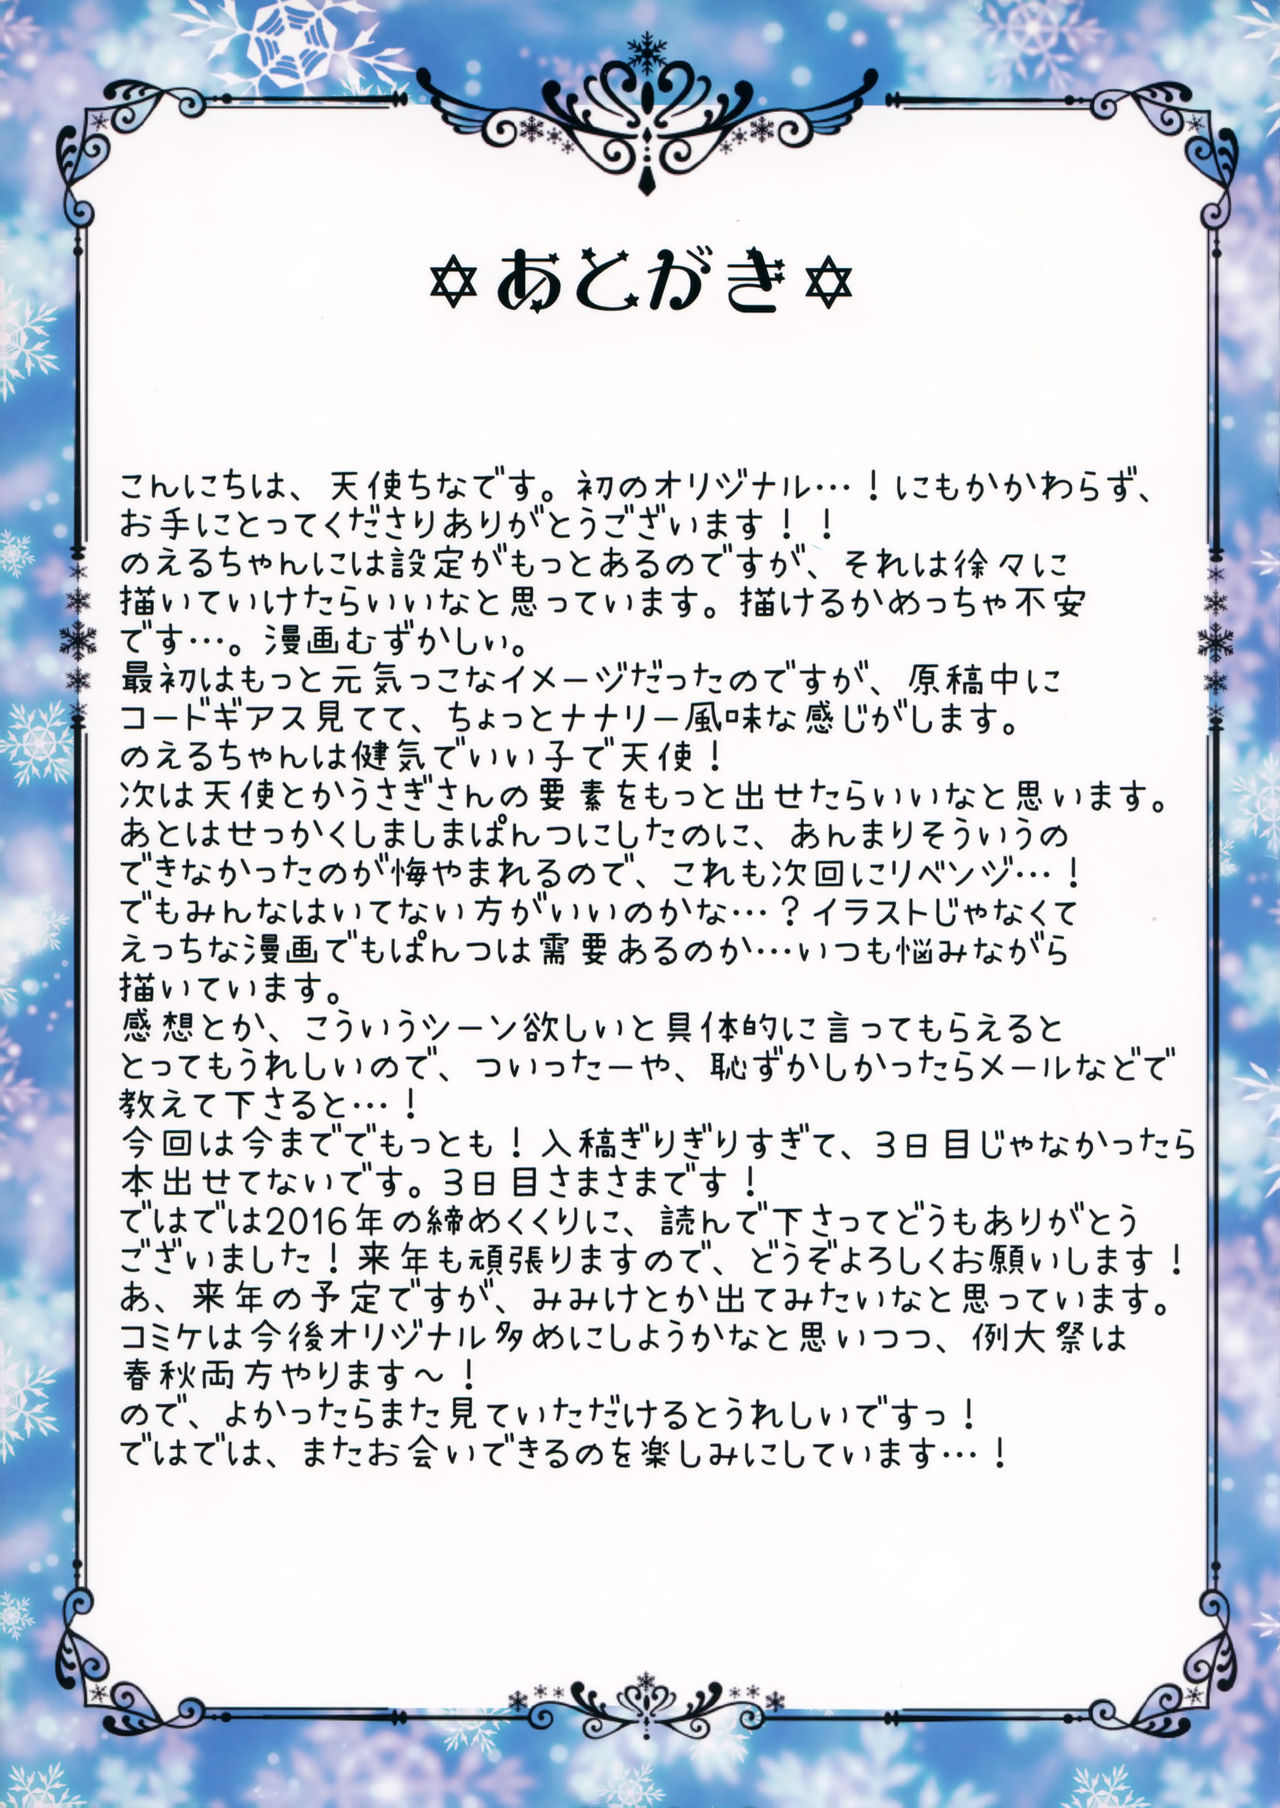 ✡あとがき✡
こんにちは、天使ちなです。初のオリジナル…！にもかかわらず、
お手にとってくださりありがとうございます！！
のえるちゃんには設定がもっとあるのですが、それは徐々に
描いていけたらいいなと思っています。描けるかめっちゃ不安
です…。漫画むずかしい。
最初はもっと元気っこなイメージだったのですが、原稿中に
コードギアス見てて、ちょっとナナリー風味な感じがします。
のえるちゃんは健気でいい子で天使！
次は天使とかうさぎさんの要素をもっと出せたらいいなと思います。
あとはせっかくしましまぱんつにしたのに、あんまりそういうの
できなかったのが悔やまれるので、これも次回にリベンジ…！
でもみんなはいてない方がいいのかな…？イラストじゃなくて
えっちな漫画でもぱんつは需要あるのか…いつも悩みながら
描いています。
感想とか、こういうシーン欲しいと具体的に言ってもらえると
とってもうれしいので、ついったーや、恥ずかしかったらメールなどで
教えて下さると…！
今回は今まででもっとも！入稿ぎりぎりすぎて、3日目じゃなかったら
本出せてないです。3日目さまさまです！
ではでは2016年の締めくくりに、読んで下さってどうもありがとう
ございました！来年も頑張りますので、どうぞよろしくお願いします！
あ、来年の予定ですが、みみけとか出てみたいなと思っています。
コミケは今後オリジナル多めにしようかなと思いつつ、例大祭は
春秋両方やります～！
ので、よかったらまた見ていただけるとうれしいですっ！
ではでは、またお会いできるのを楽しみにしています…！